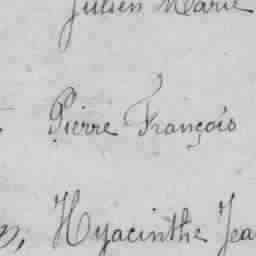 Julien Marie
Pierre François
Hyacinthe Jea